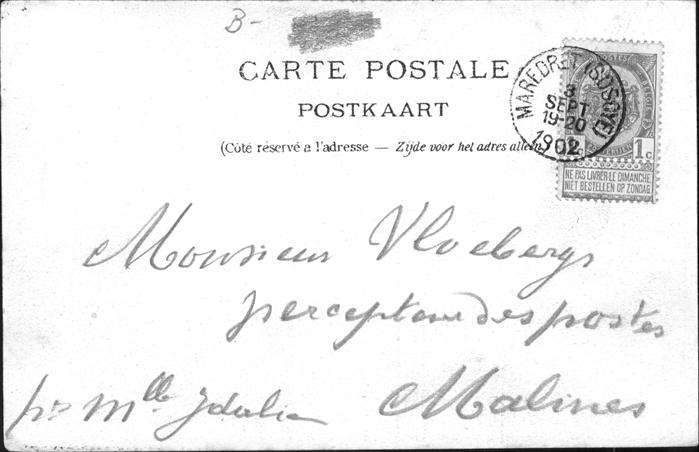 B-
CARTE POSTALE
POSTKAART
(Côté réservé a l'adresse — Zijde voor het adres alleen)
MAREDRET (SOSOYE)
3
SEPT
19-20
1902
1c
NE PAS LIVRER LE DIMANCHE
NIET BESTELLEN OP ZONDAG
Monsieur Vloebergs
percepteur des postes
pr Mlle Idalie Malines